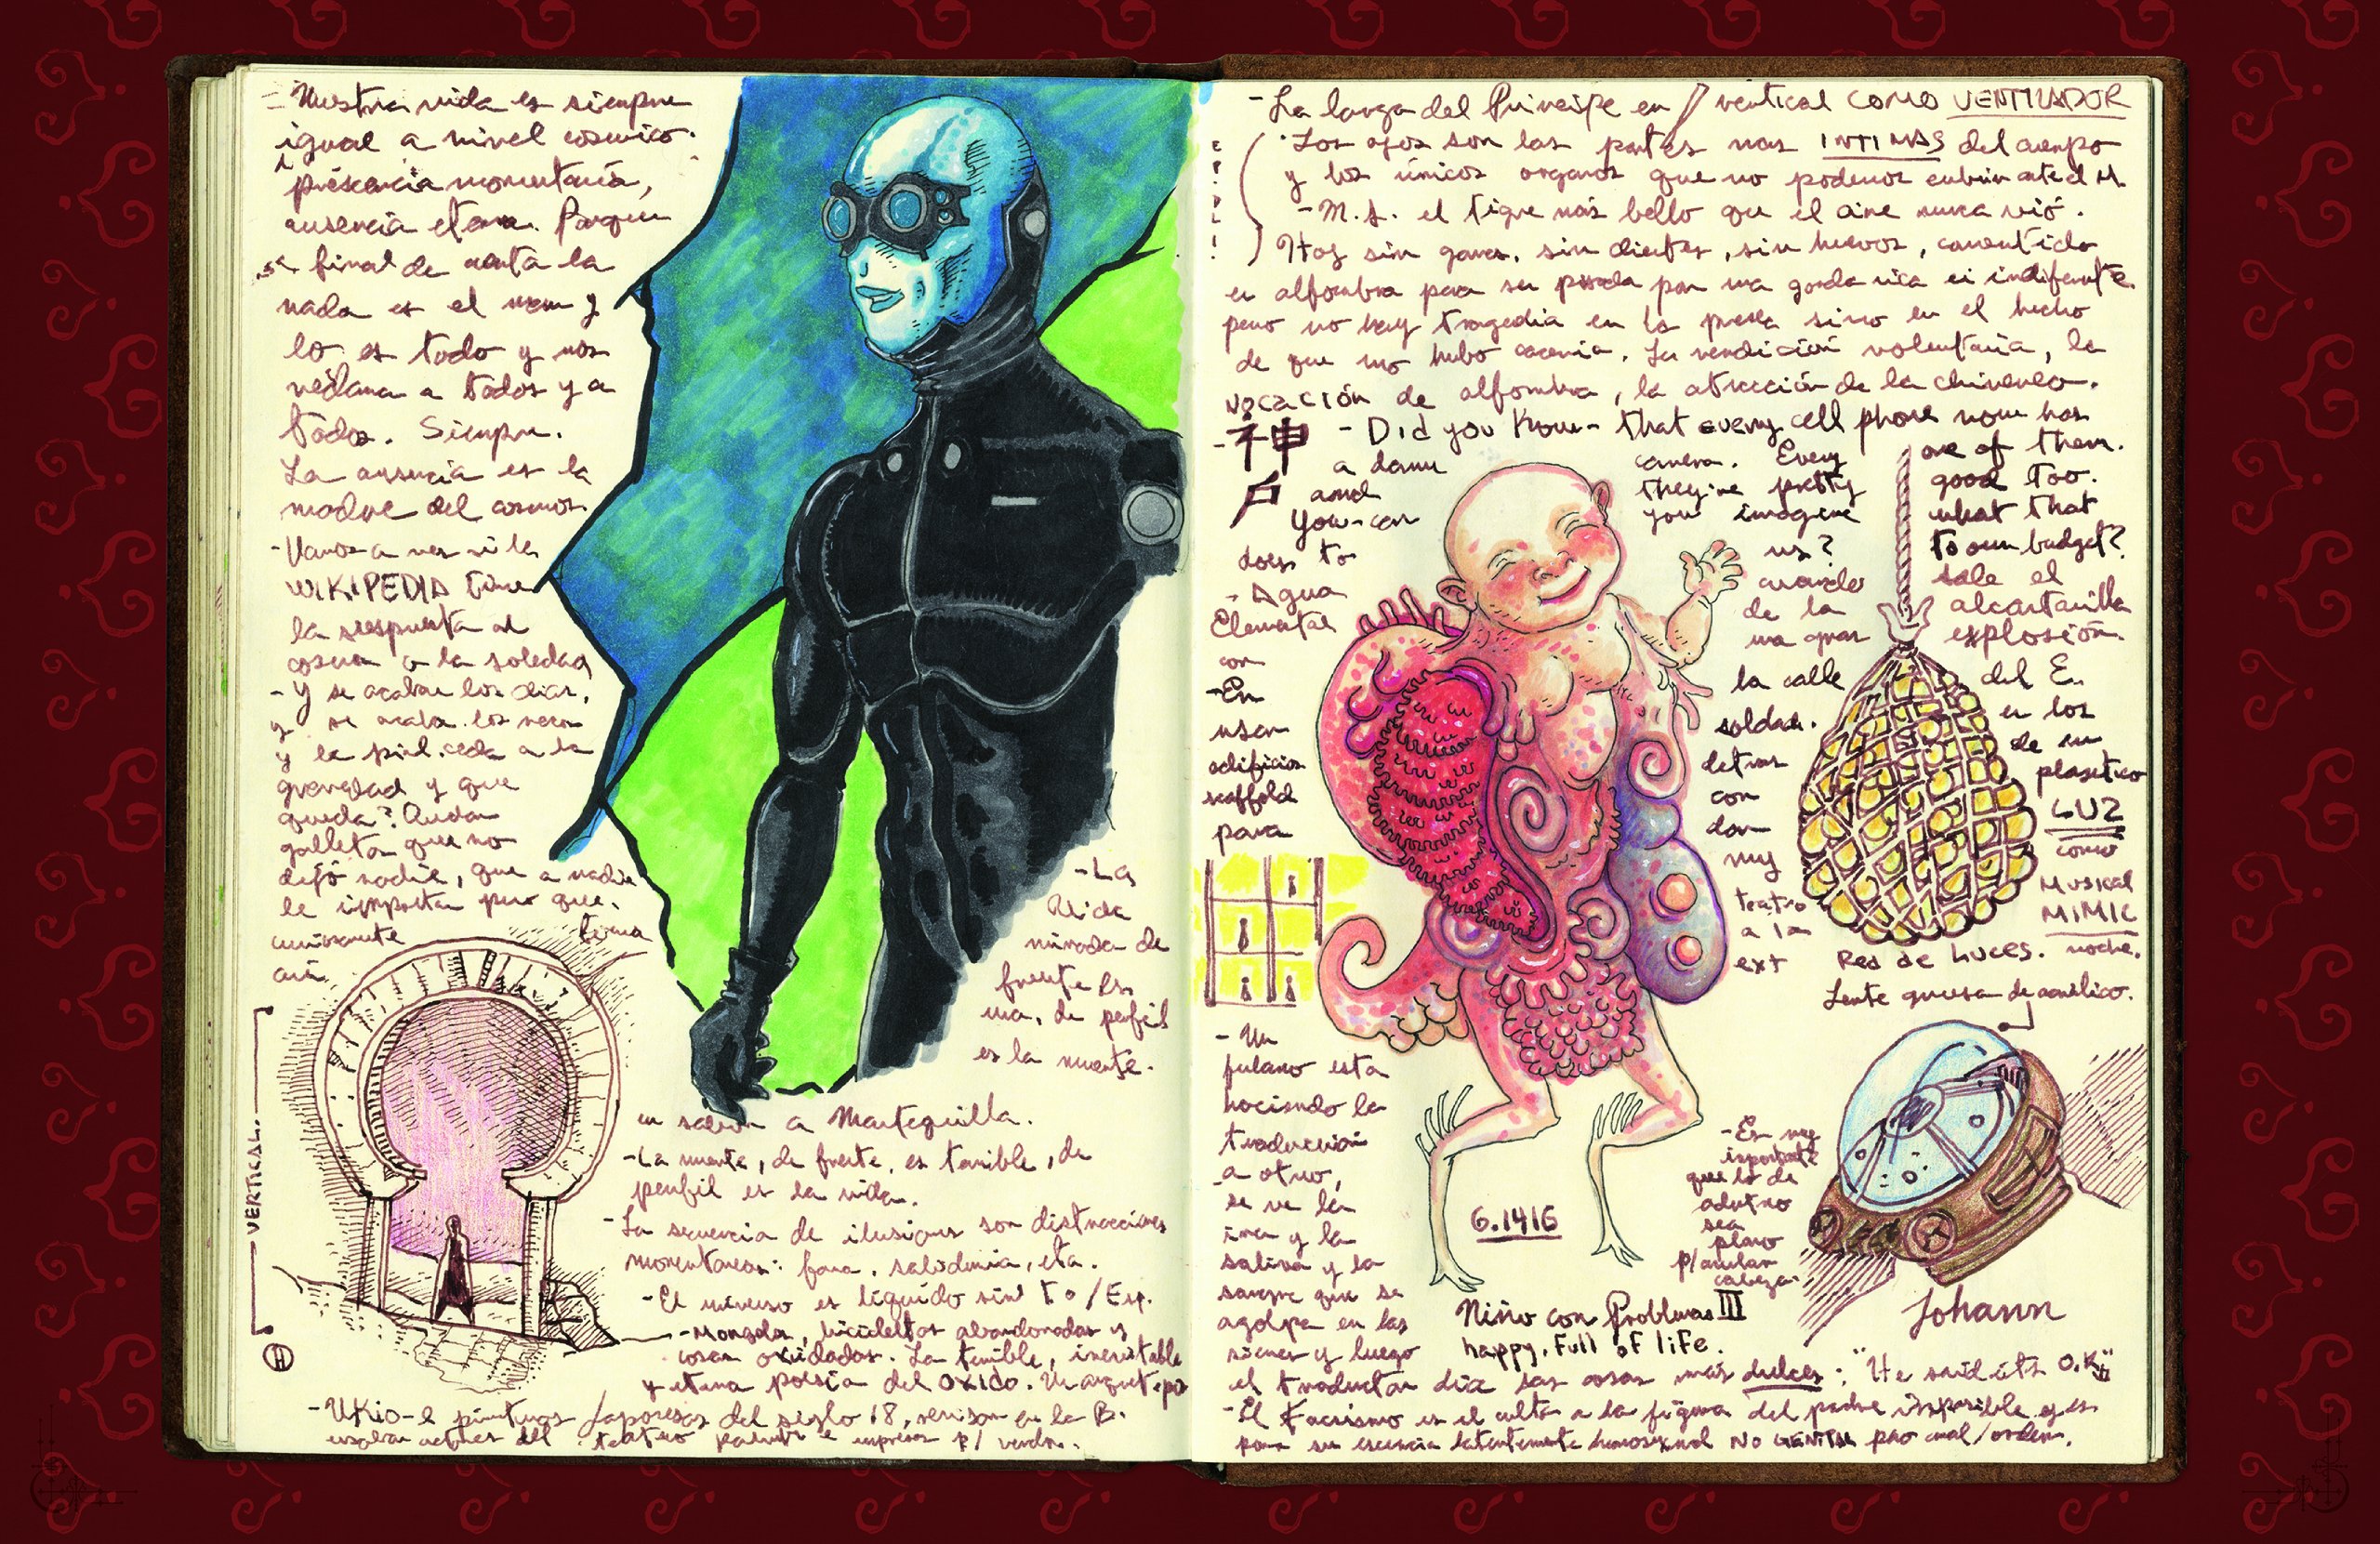 - Nuestra vida es siempre
igual a nivel cosmico.
presencia momentanea,
ausencia eterna. Porque
final de cuenta la
nada es el
lo es todo y nos
reclama a todos y a
todo. Siempre.
La ausencia es la
madre del cosmos.
- Vamos a ver si la
WIKIPEDIA tiene
la respuesta al
cosmos o la soledad
- Y se acaban los dias,
y se acaba
y la piel ceda a la
gravedad y que
queda? Quedan
galletas que no
dejó nadie, que a nadie
le importan pero que,
curiosamente
aún
saben a Mantequilla.
VERTICAL.
- La
Vida
mirada de
frente es
una, de perfil
es la muerte.
- La muerte, de frente, es terrible, de
perfil es la vida.
- La secuencia de ilusiones son distracciones
momentaneas: fama, sabiduria, etc.
- El universo es liquido sin T o / Esp.
- Mongolia, bicicletas abandonadas y
cosas oxidadas. La terrible, inevitable
y eterna poesia del OXIDO. Un arquetipo
- UKIO-e pinturas Japonesas del siglo 18, revisar en la B.
usaban actores del teatro
- La lanza del Principe en / vertical COMO VENTILADOR
Los ojos son las partes mas INTIMAS del cuerpo
y los únicos organos que no podemos cubrir ante el M.
- M.J. el tigre más bello que el cine nunca vió.
Hoy sin garras, sin dientes, sin huevos, convertido
en alfombra para ser pisada por una gorda rica e indiferente
pero no hay tragedia en la presa sino en el hecho
de que no hubo caceria. La rendición voluntaria, la
vocación de alfombra, la atracción de la chimenea.
神戸
- Did you know - that every cell phone now has
a damn camera. Every one of them.
and they're pretty good too.
You can you imagine what that
does to us? to our budget?
- Agua cuando sale el
Elemental de la alcantarilla
con una gran explosión.
- En la calle del E.
usan soldar. en los
edificios letras de un
scaffold con plastico
para dar LUZ
muy como
teatro MUSICAL
a la MIMIC
ext noche.
RED DE LUCES.
Lente gruesa de acrilico.
- Un
fulano esta
haciendo la
traduccion
a otro,
se ve la
ira y la
saliva y la
sangre que se
agolpa en las
sienes y luego
el traductor dice las cosas más dulces: "He said it's O.K."
6.1416
Niño con Problemas III
happy, full of life.
- Es muy
importante
que lo de
adentro
sea
plano
p/anular
cabeza.
Johann
- El Fascismo es el culto a la figura del padre imposible y es
por su esencia latentemente homosexual NO GENITAL pero anal/orden.